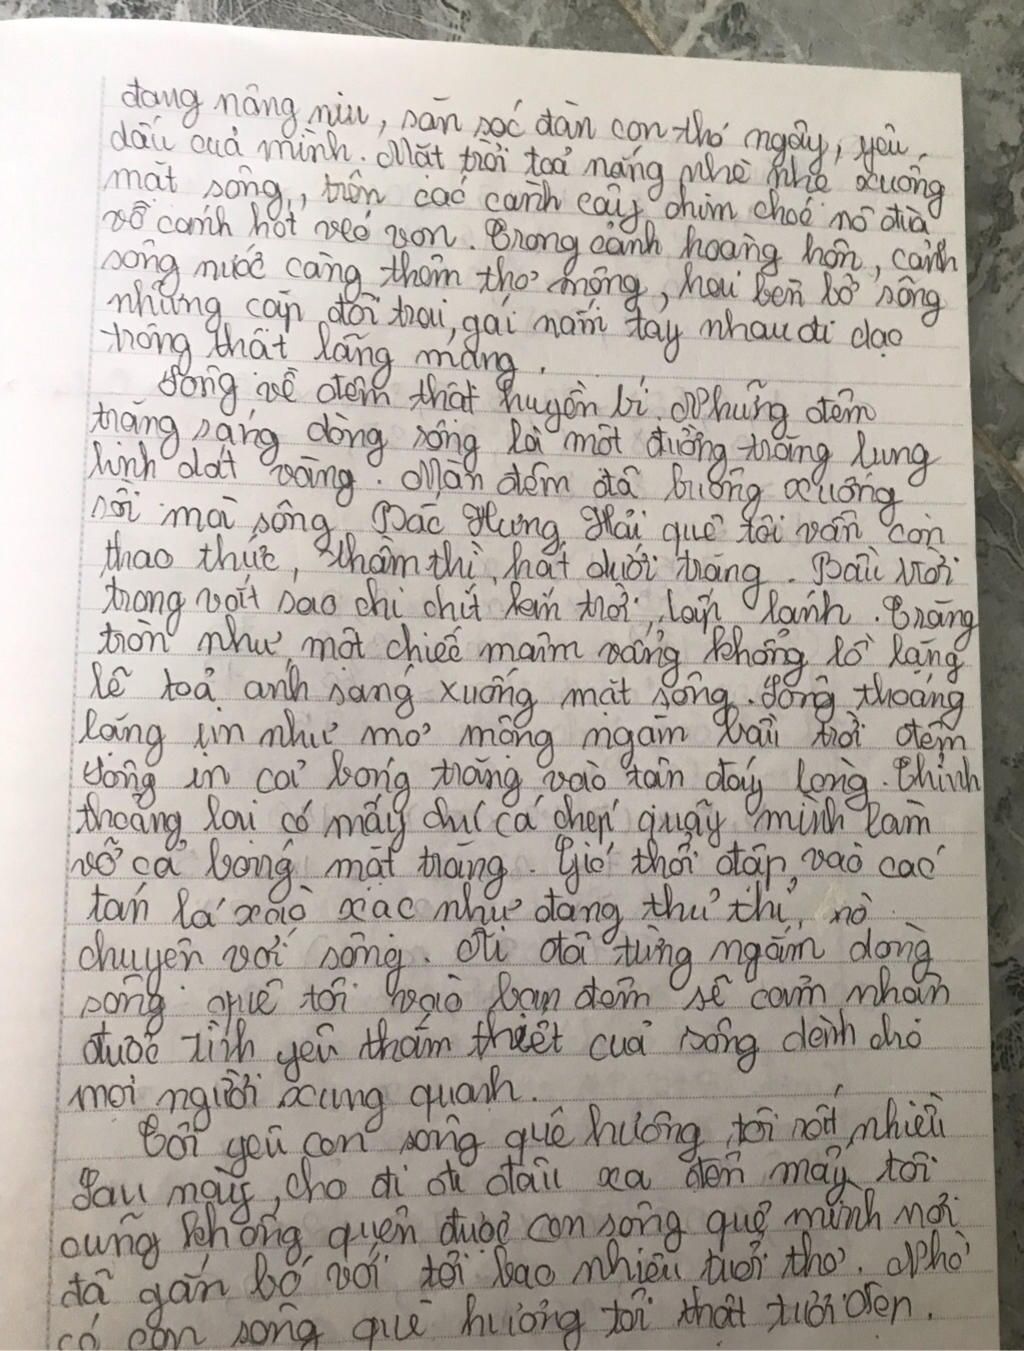 đang nâng niu, săn sóc đàn con thơ ngây, yêu
dấu của mình. Mặt trời toả nắng nhè nhẹ xuống
mặt sông, trên các cành cây chim choé nô đùa
vỗ cánh hót véo von. Trong cảnh hoàng hôn, cảnh
sông nước càng thêm thơ mộng, hai bên bờ sông
những cặp đôi trai, gái nắm tay nhau đi dạo
trông thật lãng mạng.
Sông về đêm thật huyền bí. Những đêm
trăng sáng dòng sông là một đường trăng lung
linh dát vàng. Màn đêm đã buông xuống
rồi mà sông Bắc Hưng Hải quê tôi vẫn còn
thao thức, thầm thì, hát dưới trăng. Bầu trời
trong vắt sao chi chít trên trời, lấp lánh. Trăng
tròn như một chiếc mâm vàng khổng lồ lặng
lẽ toả ánh sáng xuống mặt sông. Sông thoáng
lặng im như mơ mộng ngắm bầu trời đêm
Sông in cả bóng trăng vào tận đáy lòng. Thỉnh
thoảng lại có mấy chú cá chép quẫy mình làm
vỡ cả bóng mặt trăng. Gió thổi đập vào các
tán lá xào xạc như đang thủ thỉ, trò
chuyện với sông. Ai đã từng ngắm dòng
sông quê tôi vào ban đêm sẽ cảm nhận
được tình yêu thắm thiết của sông dành cho
mọi người xung quanh.
Tôi yêu con sông quê hương tôi rất nhiều
Sau này, cho đi đi đâu xa đến mấy tôi
cũng không quên được con sông quê mình nơi
đã gắn bó với tôi bao nhiêu tuổi thơ. Nhờ
có con sông quê hương tôi thật tươi đẹp.